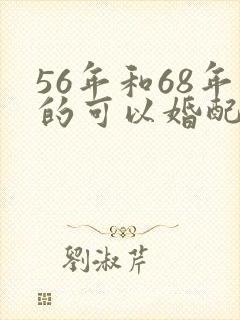 56年和68年
的可以婚配
劉淑芹